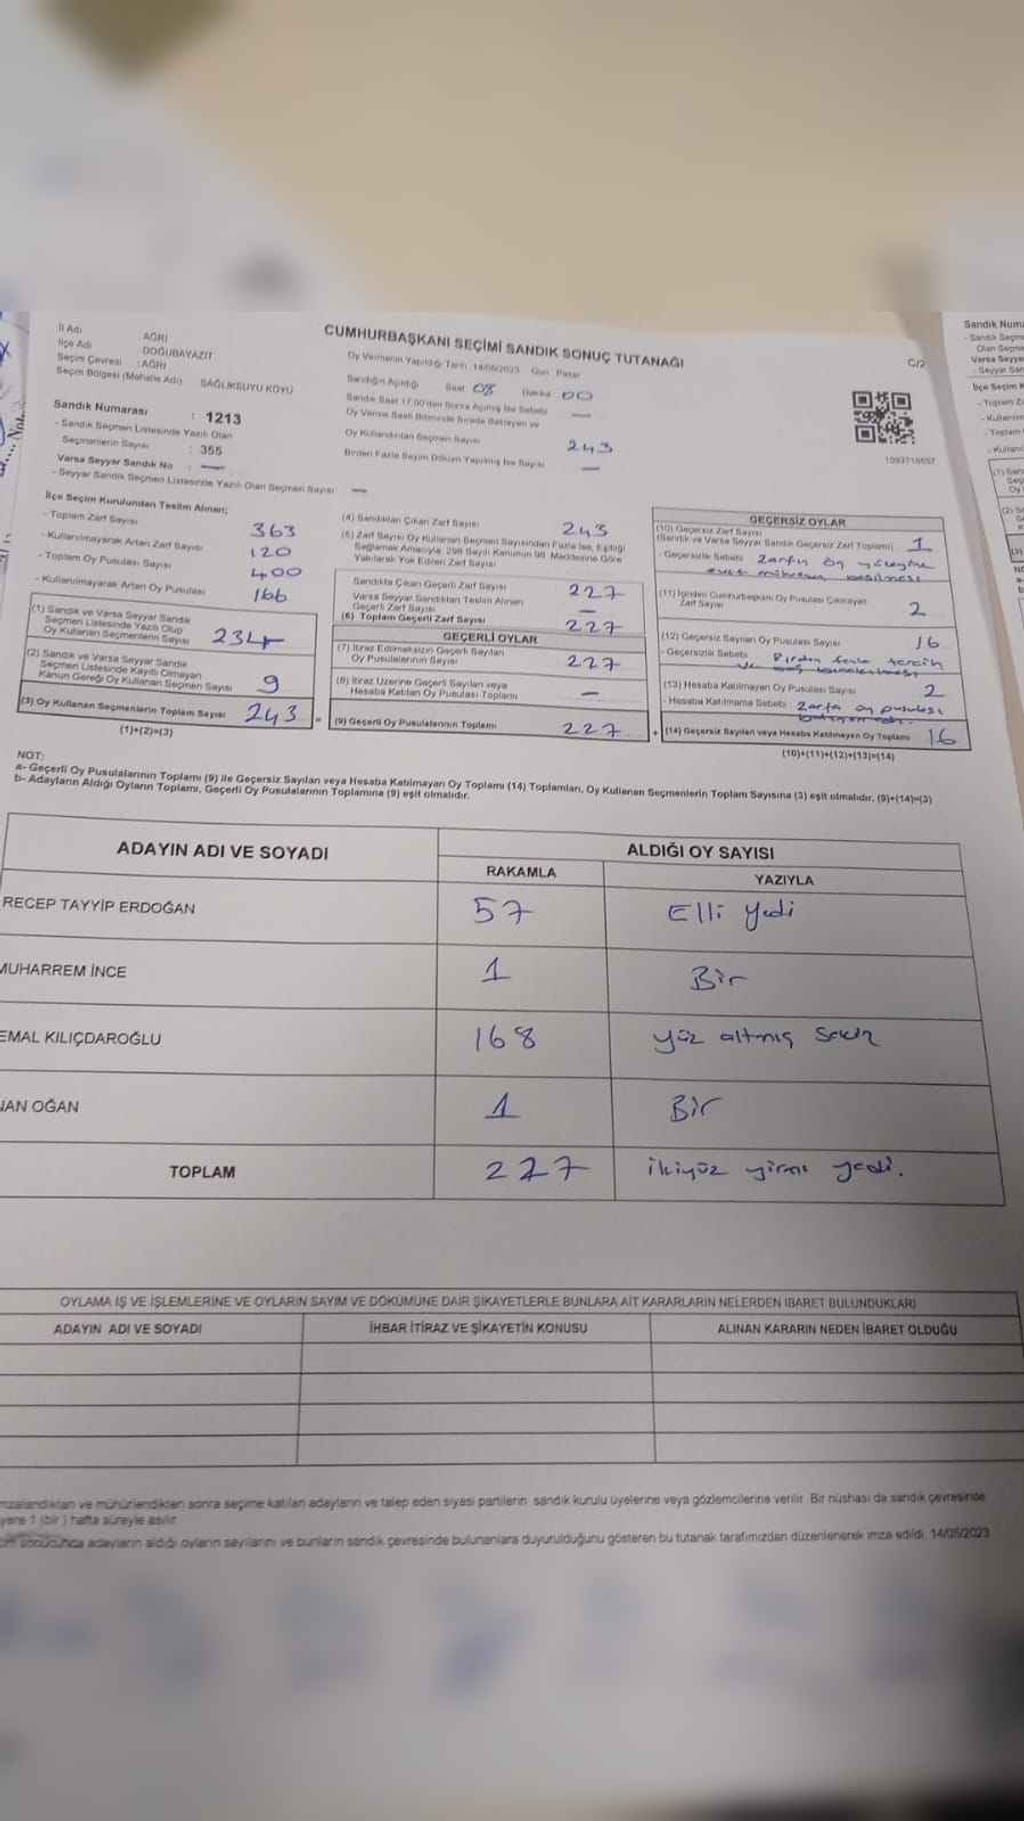 CUMHURBAŞKANI SEÇİMİ SANDIK SONUÇ TUTANAĞI
C/2
İl Adı : AĞRI
İlçe Adı : DOĞUBAYAZIT
Seçim Çevresi : AĞRI
Seçim Bölgesi (Mahalle Adı) SAĞLIKSUYU KÖYÜ
Sandık Numarası : 1213
- Sandık Seçmen Listesinde Yazılı Olan
Seçmenlerin Sayısı : 355
Varsa Seyyar Sandık No : —
- Seyyar Sandık Seçmen Listesinde Yazılı Olan Seçmen Sayısı —
Oy Vermenin Yapıldığı Tarih : 14/05/2023 Gün : Pazar
Sandığın Açıldığı Saat : 08 Dakika : 00
Sandık Saat 17.00'den Sonra Açılmış İse Sebebi —
Oy Verme Saati Bitiminde Sırada Bekleyen ve
Oy Kullandırılan Seçmen Sayısı 243
Birden Fazla Sayım Döküm Yapılmış İse Sayısı —
İlçe Seçim Kurulundan Teslim Alınan;
- Toplam Zarf Sayısı 363
- Kullanılmayarak Artan Zarf Sayısı 120
- Toplam Oy Pusulası Sayısı 400
- Kullanılmayarak Artan Oy Pusulası 166
(1) Sandık ve Varsa Seyyar Sandık
Seçmen Listesinde Yazılı Olup
Oy Kullanan Seçmenlerin Sayısı 234
(2) Sandık ve Varsa Seyyar Sandık
Seçmen Listesinde Kayıtlı Olmayan
Kanun Gereği Oy Kullanan Seçmen Sayısı 9
(3) Oy Kullanan Seçmenlerin Toplam Sayısı 243
(1)+(2)=(3)
(4) Sandıktan Çıkan Zarf Sayısı 243
(5) Zarf Sayısı Oy Kullanan Seçmen Sayısından Fazla İse, Eşitliği
Sağlamak Amacıyla, 298 Sayılı Kanunun 98. Maddesine Göre
Yakılarak Yok Edilen Zarf Sayısı
Sandıkta Çıkan Geçerli Zarf Sayısı 227
Varsa Seyyar Sandıktan Teslim Alınan
Geçerli Zarf Sayısı —
(6) Toplam Geçerli Zarf Sayısı 227
GEÇERLİ OYLAR
(7) İtiraz Edilmeksizin Geçerli Sayılan
Oy Pusulalarının Sayısı 227
(8) İtiraz Üzerine Geçerli Sayılan veya
Hesaba Katılan Oy Pusulası Toplamı —
(9) Geçerli Oy Pusulalarının Toplamı 227
GEÇERSİZ OYLAR
(10) Geçersiz Zarf Sayısı
(Sandık ve Varsa Seyyar Sandık Geçersiz Zarf Toplamı) 1
- Geçersizlik Sebebi Zarfın ön yüzüne
evet mührünün basılması
(11) İçinden Cumhurbaşkanı Oy Pusulası Çıkmayan
Zarf Sayısı 2
(12) Geçersiz Sayılan Oy Pusulası Sayısı 16
- Geçersizlik Sebebi Birden fazla tercih
ve
(13) Hesaba Katılmayan Oy Pusulası Sayısı 2
- Hesaba Katılmama Sebebi Zarfa oy pusulası
(14) Geçersiz Sayılan veya Hesaba Katılmayan Oy Toplamı 16
(10)+(11)+(12)+(13)=(14)
NOT:
a- Geçerli Oy Pusulalarının Toplamı (9) ile Geçersiz Sayılan veya Hesaba Katılmayan Oy Toplamı (14) Toplamları, Oy Kullanan Seçmenlerin Toplam Sayısına (3) eşit olmalıdır. (9)+(14)=(3)
b- Adayların Aldığı Oyların Toplamı, Geçerli Oy Pusulalarının Toplamına (9) eşit olmalıdır.
ADAYIN ADI VE SOYADI ALDIĞI OY SAYISI
RAKAMLA YAZIYLA
RECEP TAYYİP ERDOĞAN 57 Elli yedi
MUHARREM İNCE 1 Bir
EMAL KILIÇDAROĞLU 168 yüz altmış sekiz
NAN OĞAN 1 Bir
TOPLAM 227 ikiyüz yirmi yedi.
OYLAMA İŞ VE İŞLEMLERİNE VE OYLARIN SAYIM VE DÖKÜMÜNE DAİR ŞİKAYETLERLE BUNLARA AİT KARARLARIN NELERDEN İBARET BULUNDUKLARI
ADAYIN ADI VE SOYADI İHBAR İTİRAZ VE ŞİKAYETİN KONUSU ALINAN KARARIN NEDEN İBARET OLDUĞU
mzalandıktan ve mühürlendikten sonra seçime katılan adayların ve talep eden siyasi partilerin sandık kurulu üyelerine veya gözlemcilerine verilir. Bir nüshası da sandık çevresinde
yere 1 (bir) hafta süreyle asılır.
sonucunda adayların aldığı oyların sayılarını ve bunların sandık çevresinde bulunanlara duyurulduğunu gösteren bu tutanak tarafımızdan düzenlenerek imza edildi. 14/05/2023